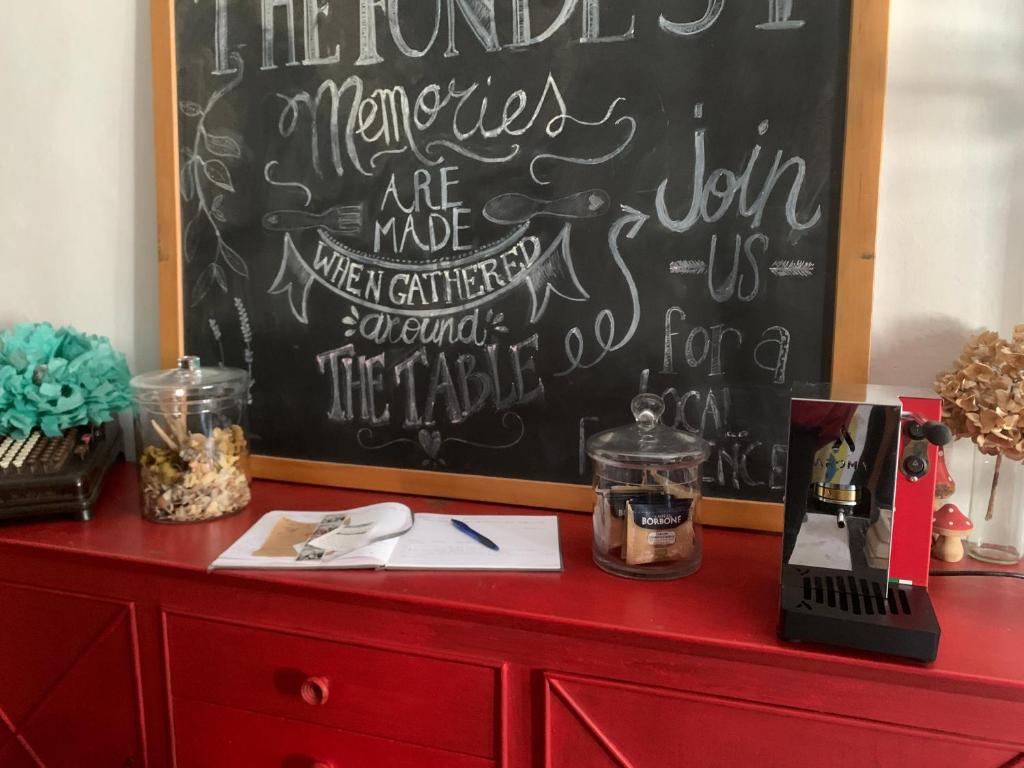 THE FONDEST
Memories
ARE
MADE
WHEN GATHERED
around
THE TABLE
Join
US
for a
LOCAL
BORBONE